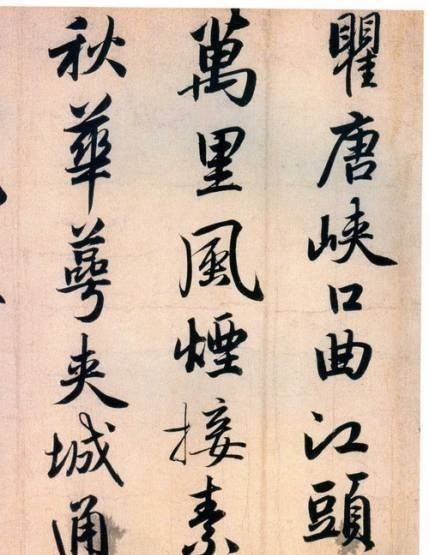 瞿唐峽口曲江頭
萬里風煙接素
秋華蕚夾城通